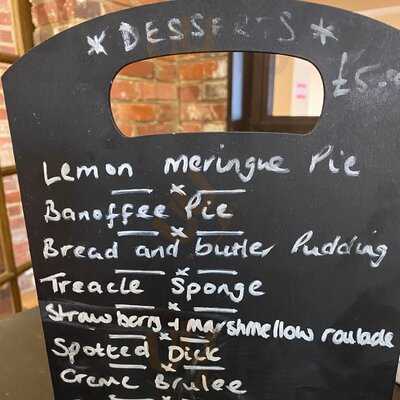 * DESSERTS *
£5.
Lemon meringue Pie
Banoffee Pie
Bread and butter Pudding
Treacle Sponge
Strawberry + marshmellow roulade
Spotted Dick
Creme Brulee